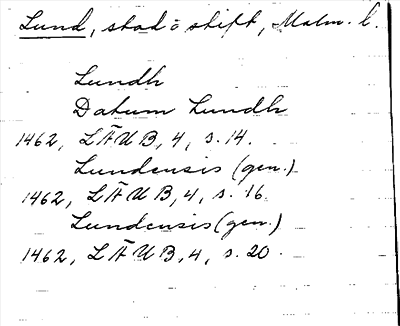 Lund, stad o stift, Malm. l.
Lundh
Datum Lundh
1462, LÄUB, 4, s. 14.
Lundensis (gen.)
1462, LÄUB, 4, s. 16.
Lundensis (gen.)
1462, LÄUB, 4, s. 20.